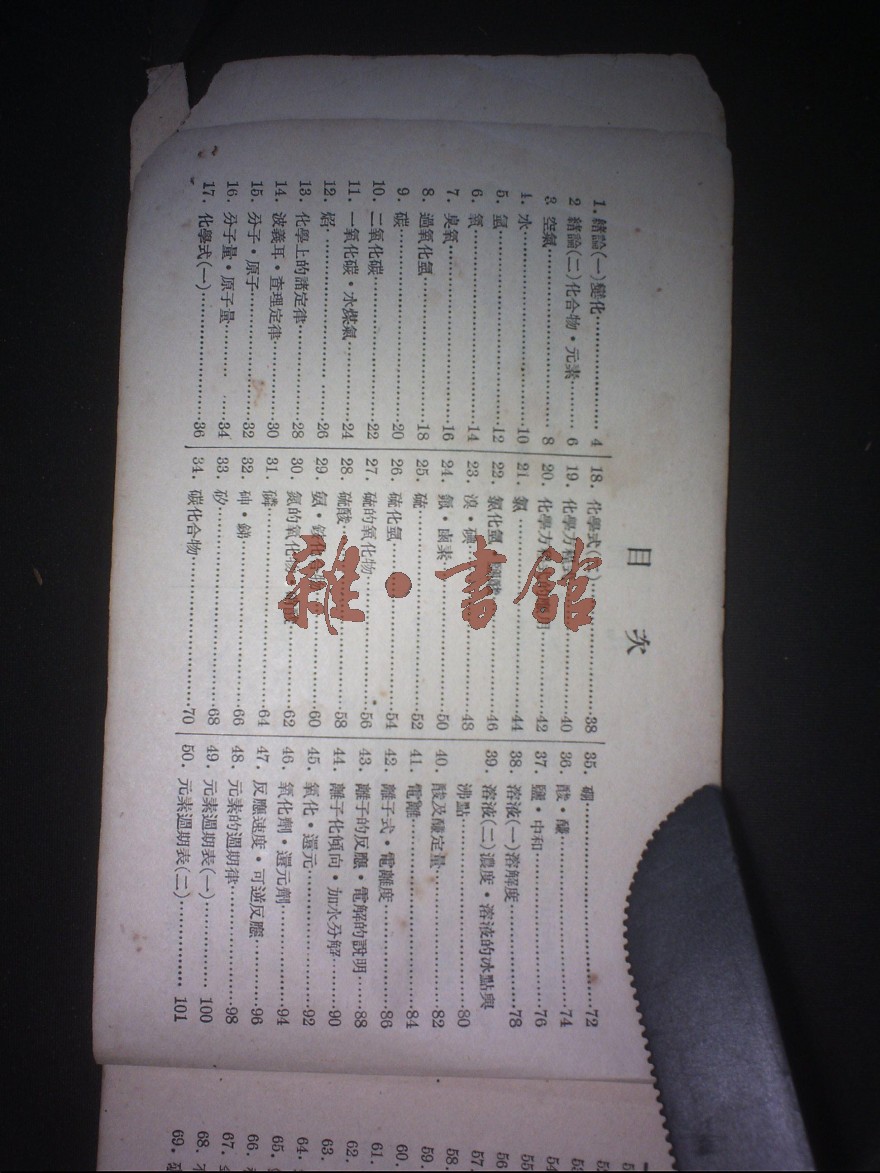 目 次
1. 緒論(一)變化 4
2 緒論(二)化合物·元素 6
3 空氣 8
4. 水 10
5. 氫 12
6. 氧 14
7. 臭氧 16
8. 過氧化氫 18
9. 碳 20
10. 二氧化碳 22
11. 一氧化碳·水煤氣 24
12. 焰 26
13. 化學上的諸定律 28
14. 波義耳·查理定律 30
15. 分子·原子 32
16. 分子量·原子量 34
17. 化學式(一) 36
18. 化學式 38
19. 化學方程式 40
20. 化學方程 明 42
21. 氯 44
22. 氯化氫 46
23. 溴·碘 48
24. 氟·鹵素 50
25. 硫 52
26. 硫化氫 54
27. 硫的氧化物 56
28. 硫酸 58
29. 氨· 60
30. 氮的氧化物 62
31. 磷 64
32. 砷·銻 66
33. 矽 68
34. 碳化合物 70
35. 硼 72
36. 酸·鹼 74
37. 鹽·中和 76
38. 溶液(一)溶解度 78
39. 溶液(二)濃度·溶液的冰點與
沸點 80
40. 酸及鹼定量 82
41. 電離 84
42. 離子式·電離度 86
43. 離子的反應·電解的說明 88
44. 離子化傾向·加水分解 90
45. 氧化·還元 92
46. 氧化劑·還元劑 94
47. 反應速度·可逆反應 96
48. 元素的週期律 98
49. 元素週期表(一) 100
50. 元素週期表(二) 101
雜·書館
56
57
58.
59.
60.
61.
62.
63.
64.
65.
66.
67.
68.
69.